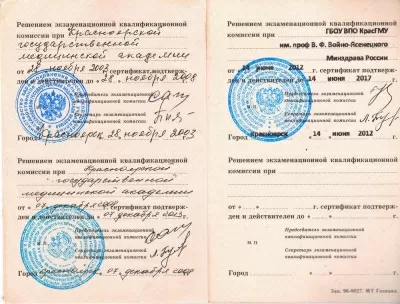 Решением экзаменационной квалификационной
комиссии при Красноярской
государственной
медицинской академии
от 28 ноября 2003 г. сертификат подтверж-
ден и действителен до 28 ноября 2008
Председатель экзаменационной
квалификационной комиссии
Секретарь экзаменационной
квалификационной комиссии
Город Красноярск 28 ноября 2003
Решением экзаменационной квалификационной
комиссии при Красноярской
государственной
медицинской академии
от 07 декабря г. сертификат подтверж-
ден и действителен до 07 декабря
Председатель экзаменационной
квалификационной комиссии
Секретарь экзаменационной
квалификационной комиссии
Город Красноярск 07 декабря
Решением экзаменационной квалификационной
комиссии при ГБОУ ВПО КрасГМУ
им. проф В. Ф. Войно-Ясенецкого
Минздрава России
14 июня 2012 сертификат подтверж-
ден и действителен до 14 июня 2017
Председатель экзаменационной
квалификационной комиссии
Секретарь экзаменационной
квалификационной комиссии
Город Красноярск 14 июня 2012
Решением экзаменационной квалификационной
комиссии при
от « » г. сертификат подтверж-
ден и действителен до « »
Председатель экзаменационной
квалификационной комиссии
М П
Секретарь экзаменационной
квалификационной комиссии
Город « »
Зак. МТ Гознака.